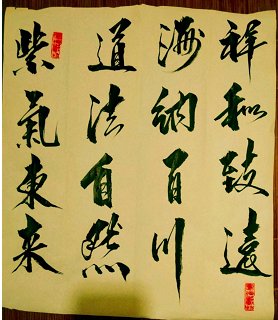 祥和致遠
海納百川
道法自然
紫氣東来